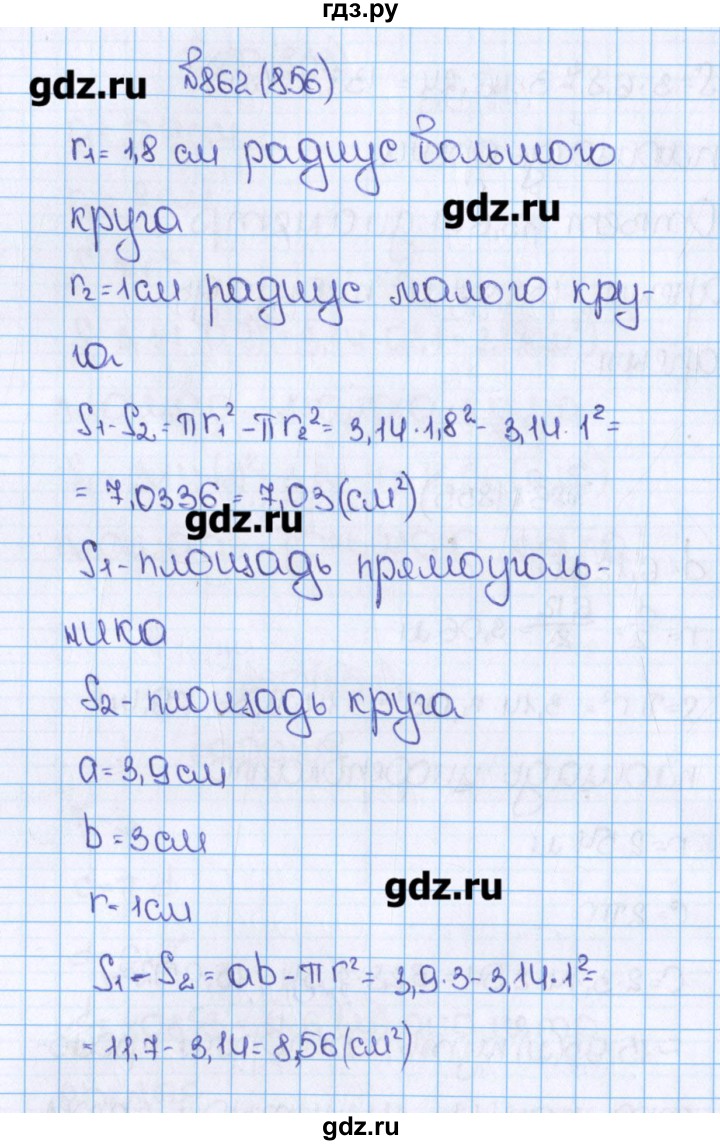 гдз.ру
№862(856)
gdz.ru
r₁=1,8 см радиус большого
gdz.ru
круга
r₂=1см радиус малого кру-
га
S₁-S₂=πr₁²-πr₂²=3,14·1,8²-3,14·1²=
=7,0336=7,03(см²)
gdz.ru
S₁-площадь прямоуголь-
ника
S₂-площадь круга
a=3,9см
b=3см
gdz.ru
r=1см
S₁-S₂=ab-πr²=3,9·3-3,14·1²=
=11,7-3,14=8,56(см²)
gdz.ru